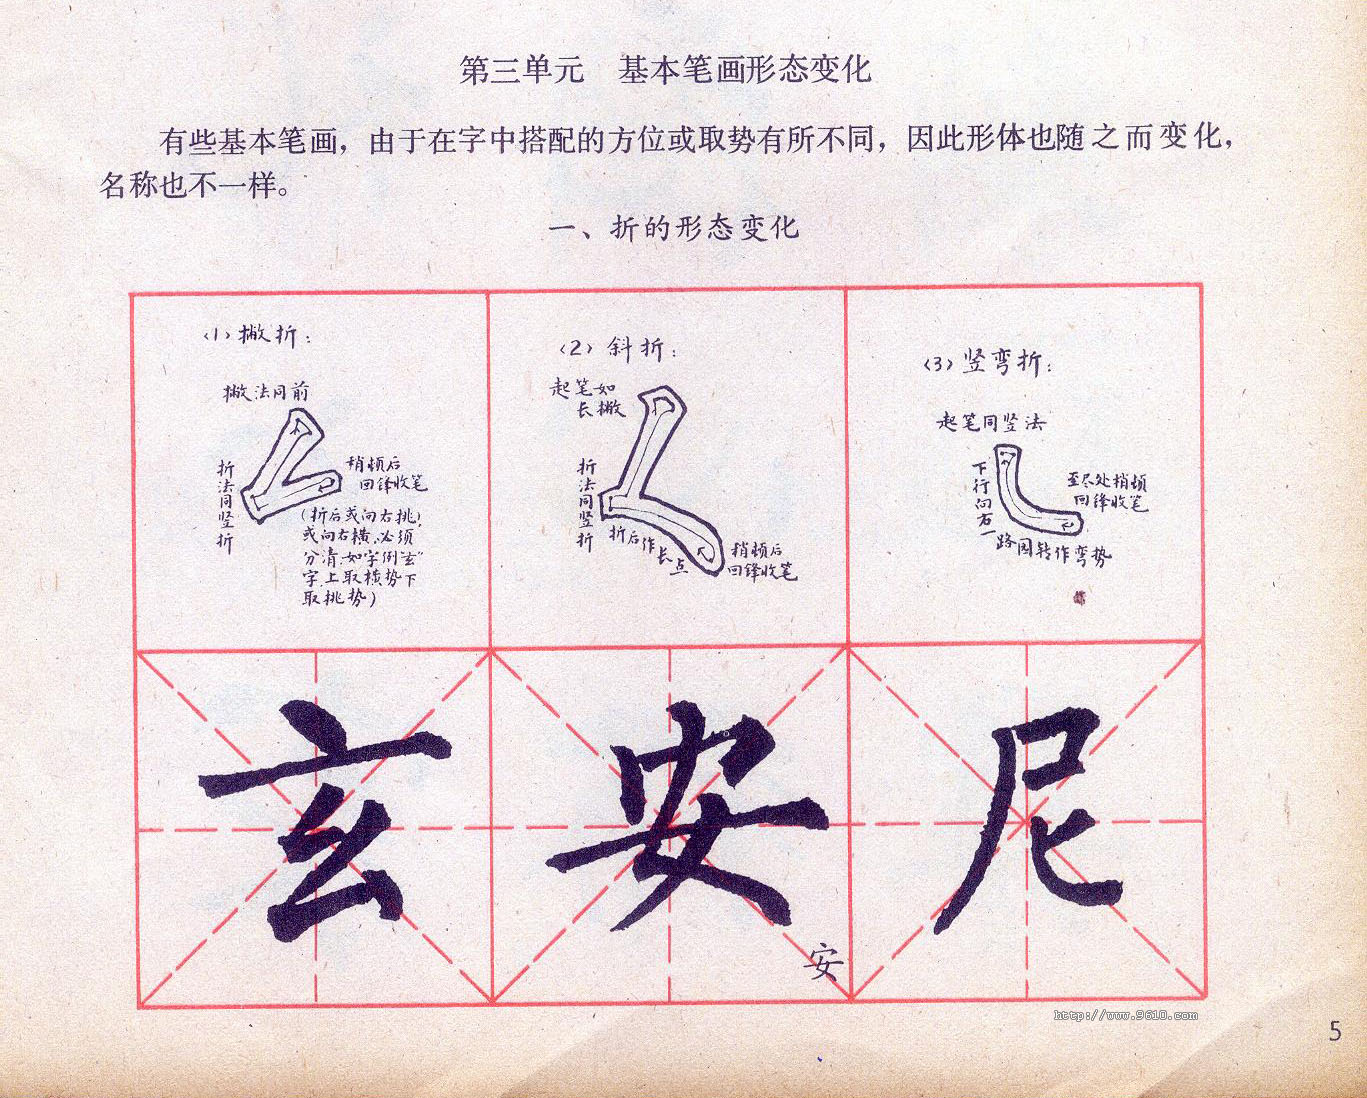 第三单元　基本笔画形态变化
有些基本笔画，由于在字中搭配的方位或取势有所不同，因此形体也随之而变化，
名称也不一样。
一、折的形态变化
（1）撇折：
撇法同前
折法同竖折
稍顿后
回锋收笔
（折后或向右挑，
或向右横，必须
分清，如字例“玄”
字上取横势下
取挑势）
（2）斜折：
起笔如
长撇
折法同竖折
折后作长点
稍顿后
回锋收笔
（3）竖弯折：
起笔同竖法
下行向右一
路圆转作弯势
至尽处稍顿
回锋收笔
玄
安
尼
安
http://www.9610.com
5